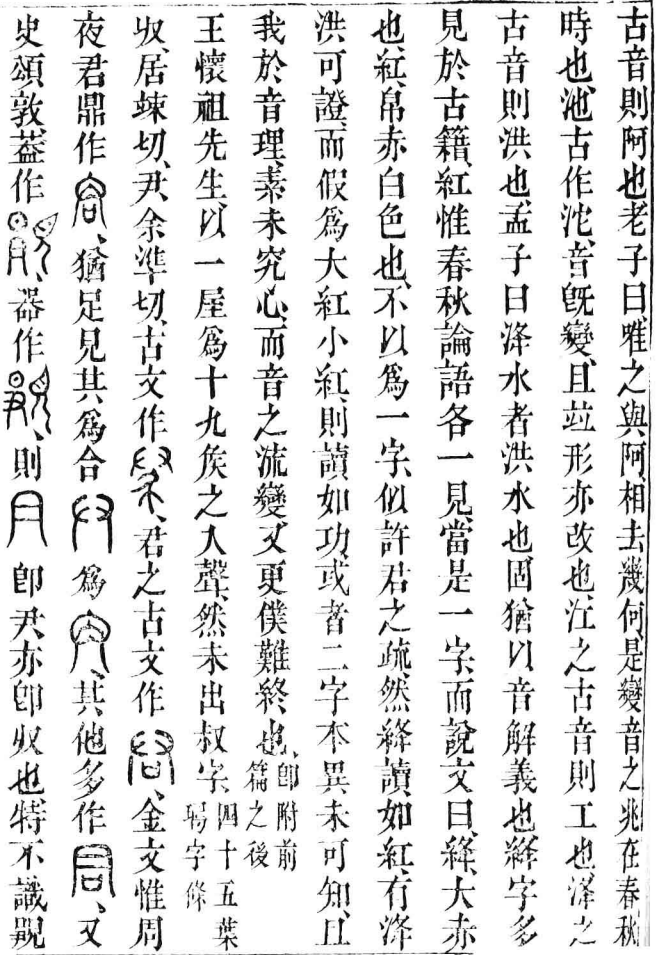 古音則阿也老子曰唯之與阿相去幾何是變音之兆在春秋
時也池古作沱音旣變且竝形亦改也江之古音則工也洚之
古音則洪也孟子曰洚水者洪水也固猶以音解義也絳字多
見於古籍紅惟春秋論語各一見當是一字而說文曰絳大赤
也紅帛赤白色也不以爲一字似許君之疏然絳讀如紅有洚
洪可證而假爲大紅小紅則讀如功或者二字本異未可知且
我於音理素未究心而音之流變又更僕難終也卽附前篇之後
王懷祖先生以一屋爲十九矦之入聲然未出叔字四十五葉 字條
収居竦切尹余準切古文作 君之古文作 金文惟周
夜君鼎作 猶足見其爲合 爲 其他多作 又
史頌敦蓋作 器作 則 卽尹亦卽収也特不識